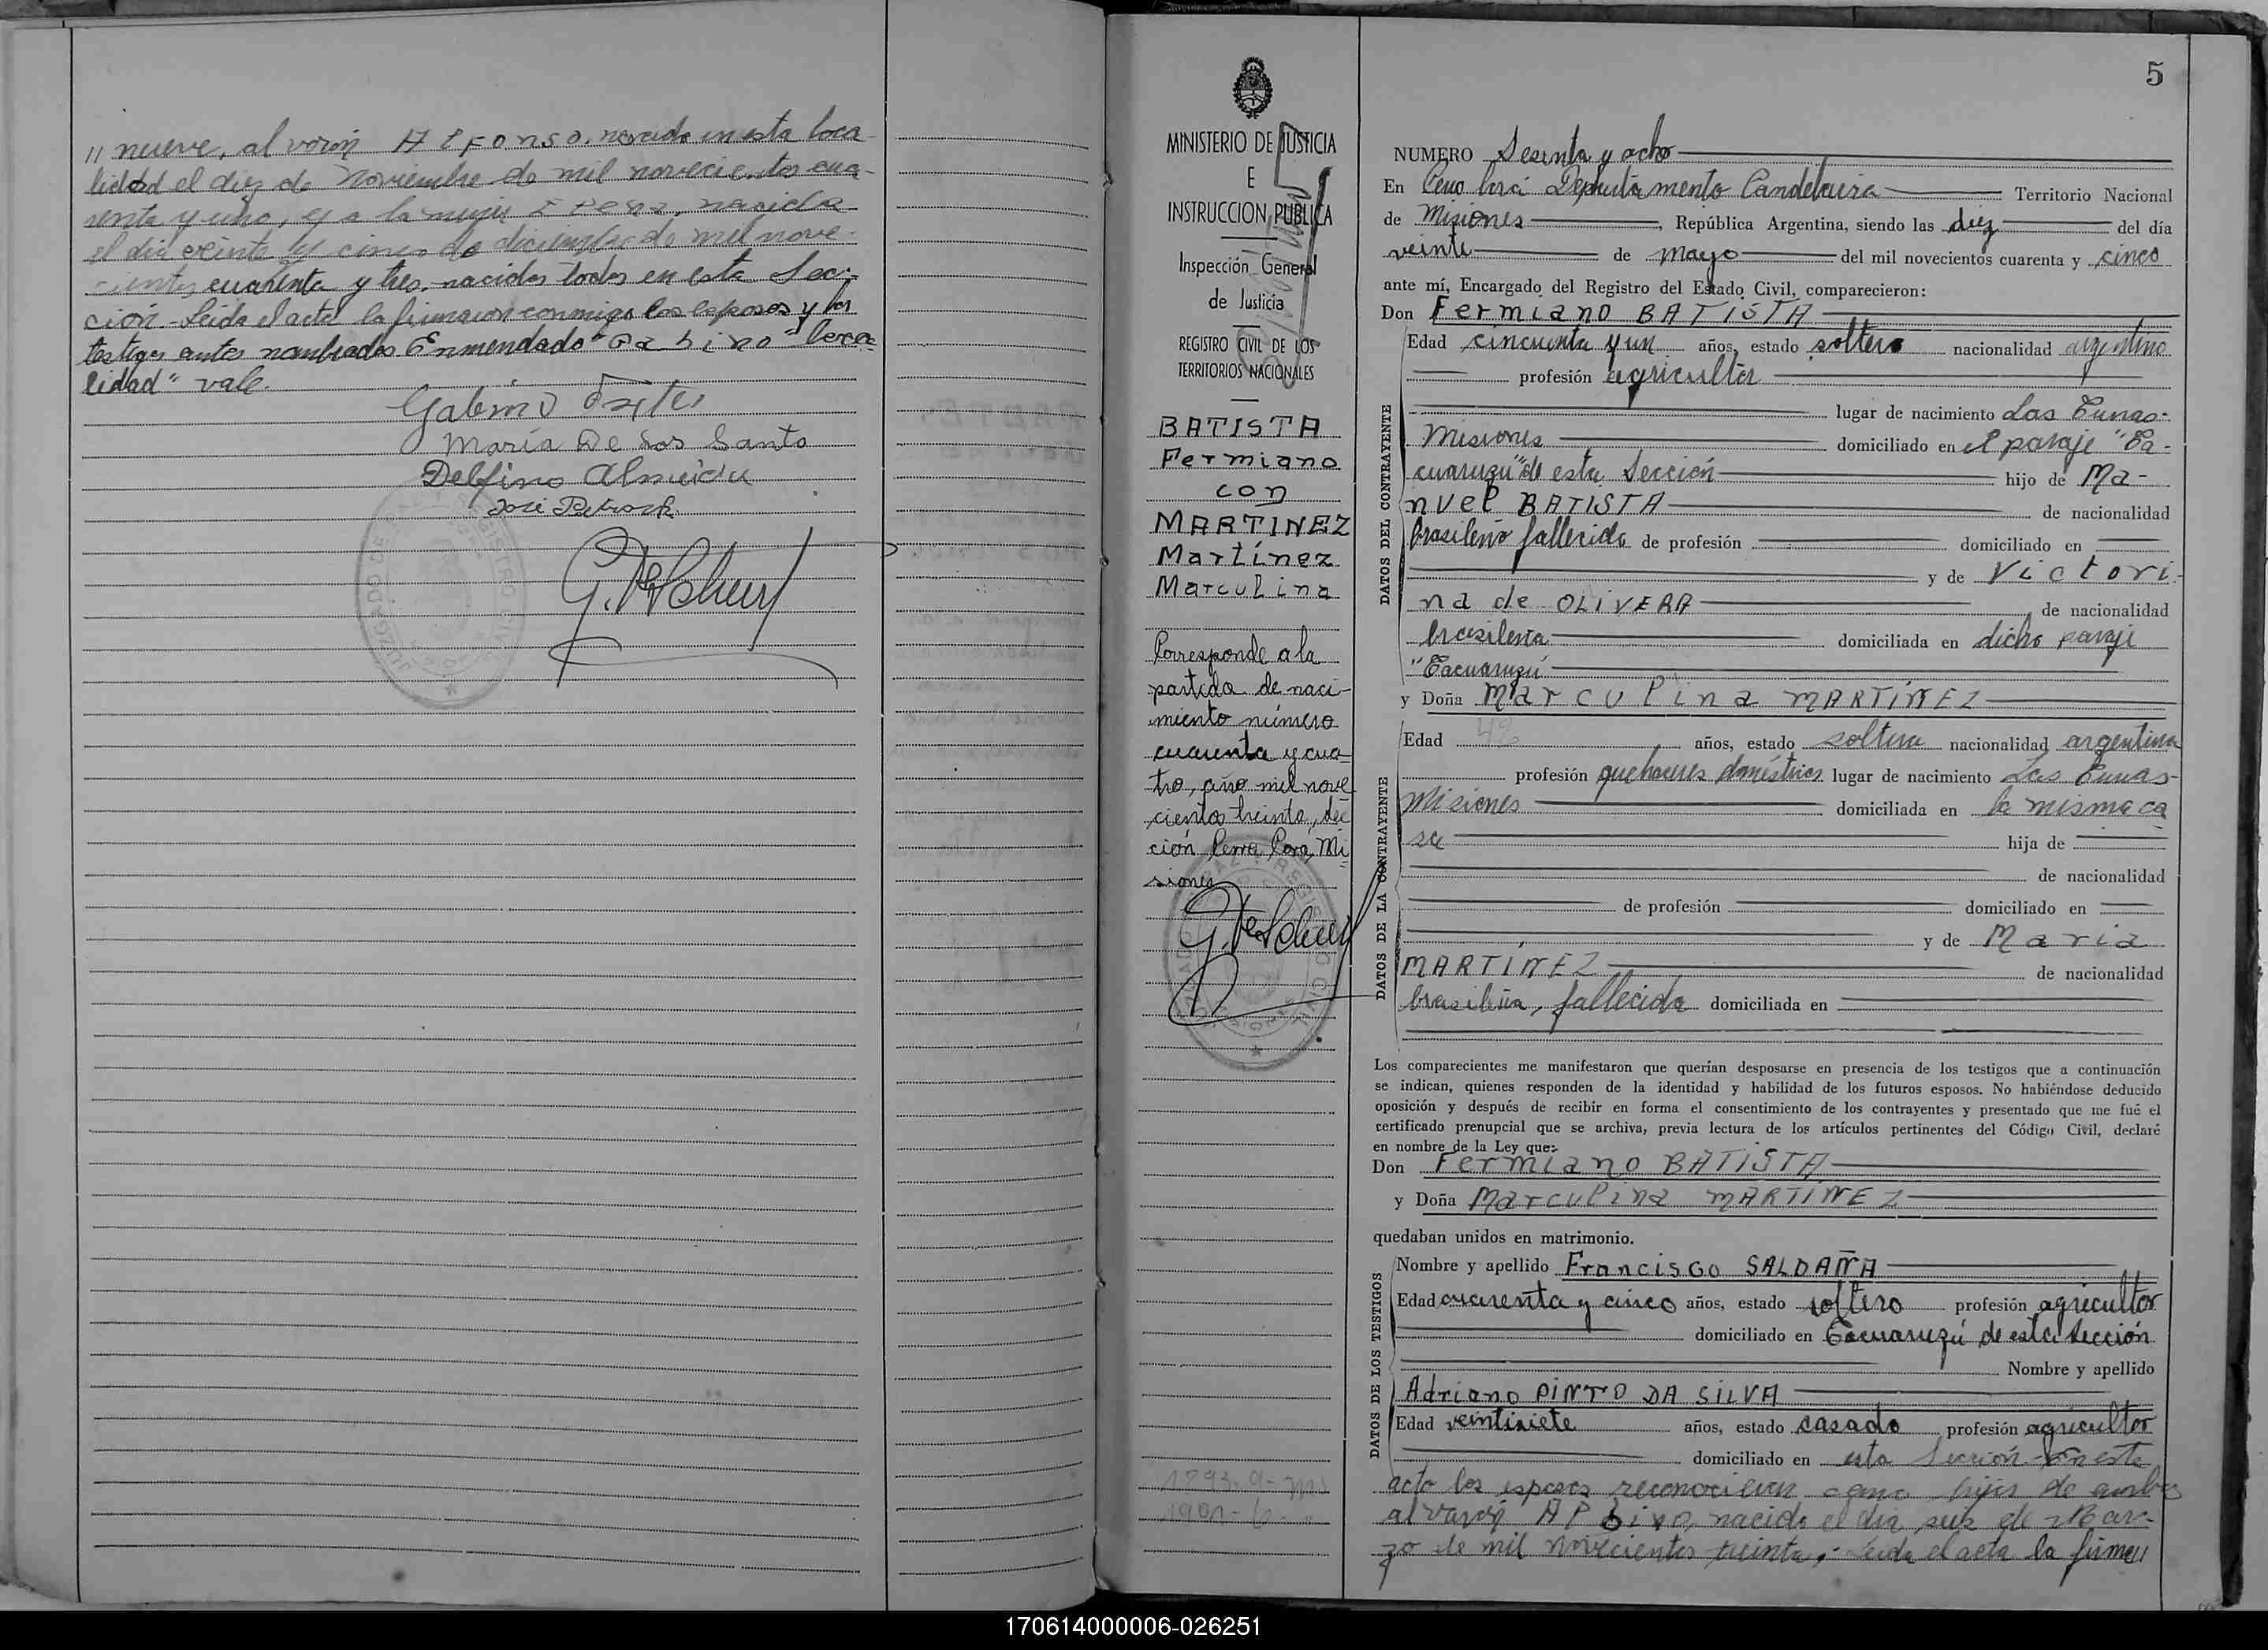 " nueve, al varón Alfonso, nacido en esta loca-
lidad el diez de Noviembre de mil novecientos cua-
renta y uno, y a la mujer Elena, nacida
el dia veinte y cinco de diciembre de mil nove-
cientos cuarenta y tres, nacidos todos en esta Sec-
ción - Leida el acta la firmaron conmigo los esposos y los
testigos antes nombrados Enmendado "Gabino" "loca-
lidad" vale.
Gabino
Maria De Los Santo
Delfino Almeida
José
5
MINISTERIO DE JUSTICIA
E
INSTRUCCION PUBLICA
Inspección General
de Justicia
REGISTRO CIVIL DE LOS
TERRITORIOS NACIONALES
BATISTA
Fermiano
con
MARTINEZ
Martínez
Marculina
Corresponde a la
partida de naci-
miento número
cuarenta y cua-
tro, año mil nove
cientos treinta, sec
ción Cerro Corá, Mi-
siones
NUMERO Sesenta y ocho
En Cerro Corá Departamento Candelaria Territorio Nacional
de Misiones, República Argentina, siendo las diez del día
veinte de mayo del mil novecientos cuarenta y cinco
ante mí, Encargado del Registro del Estado Civil, comparecieron:
Don Fermiano BATISTA
DATOS DEL CONTRAYENTE
Edad cincuenta y un años, estado soltero nacionalidad argentino
profesión agricultor
lugar de nacimiento Las Tunas-
Misiones domiciliado en el paraje "Ta-
cuaruzú" de esta Sección hijo de Ma-
nuel BATISTA de nacionalidad
brasileño fallecido de profesión domiciliado en
y de Victori-
na de OLIVERA de nacionalidad
brasileña domiciliada en dicho paraje
"Tacuaruzú
y Doña Marculina MARTÍNEZ
DATOS DE LA CONTRAYENTE
Edad 43 años, estado soltera nacionalidad argentina
profesión quehaceres domésticos lugar de nacimiento Las Tunas-
Misiones domiciliada en la misma ca
sa hija de
de nacionalidad
de profesión domiciliado en
y de Maria
MARTÍNEZ de nacionalidad
brasileña, fallecida domiciliada en
Los comparecientes me manifestaron que querían desposarse en presencia de los testigos que a continuación
se indican, quienes responden de la identidad y habilidad de los futuros esposos. No habiéndose deducido
oposición y después de recibir en forma el consentimiento de los contrayentes y presentado que me fué el
certificado prenupcial que se archiva, previa lectura de los artículos pertinentes del Código Civil, declaré
en nombre de la Ley que:
Don Fermiano BATISTA
y Doña Marculina MARTINEZ
quedaban unidos en matrimonio.
DATOS DE LOS TESTIGOS
Nombre y apellido Francisco SALDAÑA
Edad cuarenta y cinco años, estado soltero profesión agricultor
domiciliado en Tacuaruzú de esta Sección
Nombre y apellido
Adriano PINTO DA SILVA
Edad veintisiete años, estado casado profesión agricultor
domiciliado en esta Sección - En este
acto los esposos reconocieron como hijos de ambos
al varón Albino, nacido el dia seis de Mar-
zo de mil novecientos treinta,- Leida el acta la firma"
1901-6-
170614000006-026251